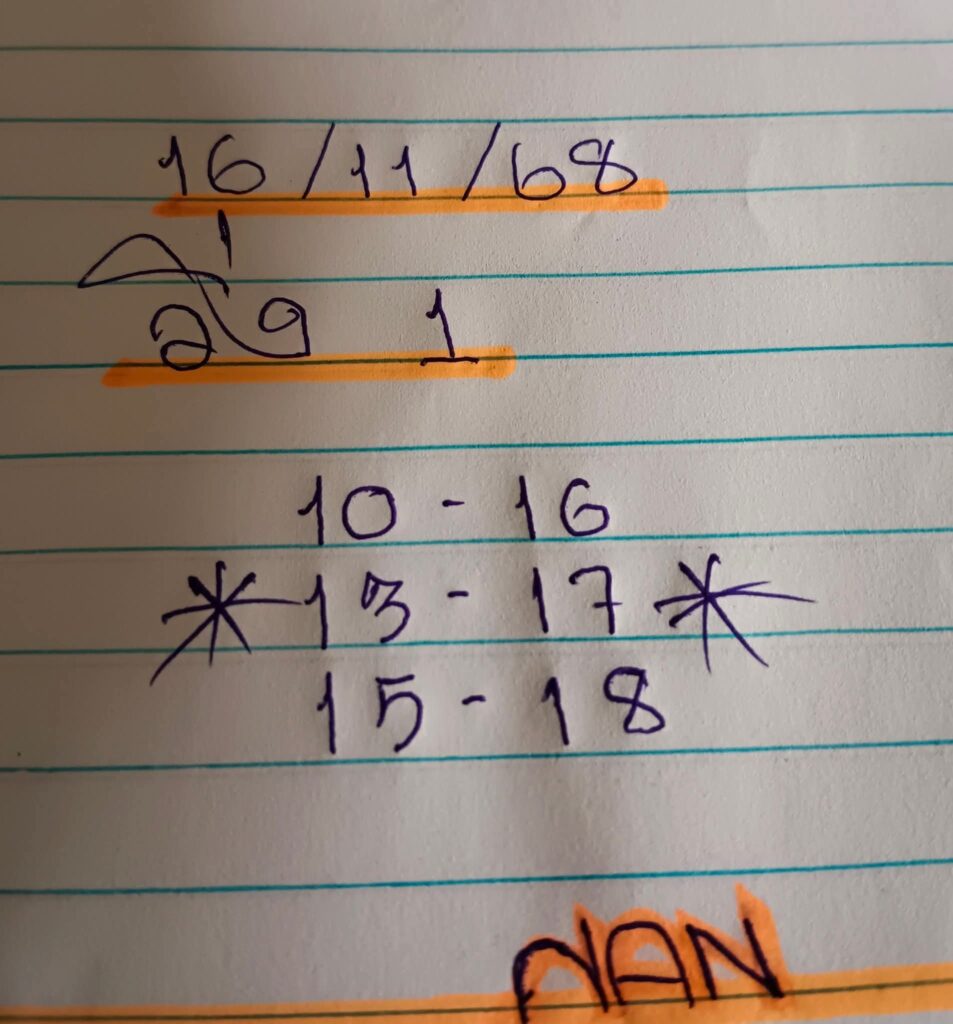 16/11/68
วิ่ง 1
10 - 16
* 13 - 17 *
15 - 18
NAN